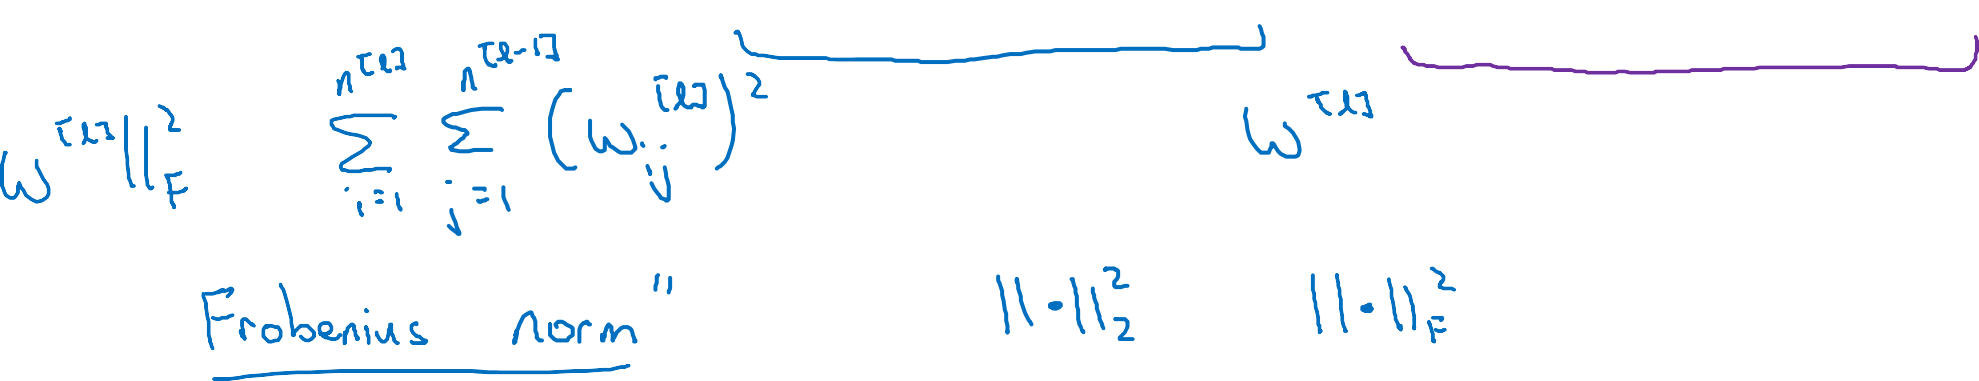 w^{[l]}||_F^2   \sum_{i=1}^{n^{[l]}} \sum_{j=1}^{n^{[l-1]}} (w_{ij}^{[l]})^2   w^{[l]}
Frobenius norm"   ||·||_2^2   ||·||_F^2